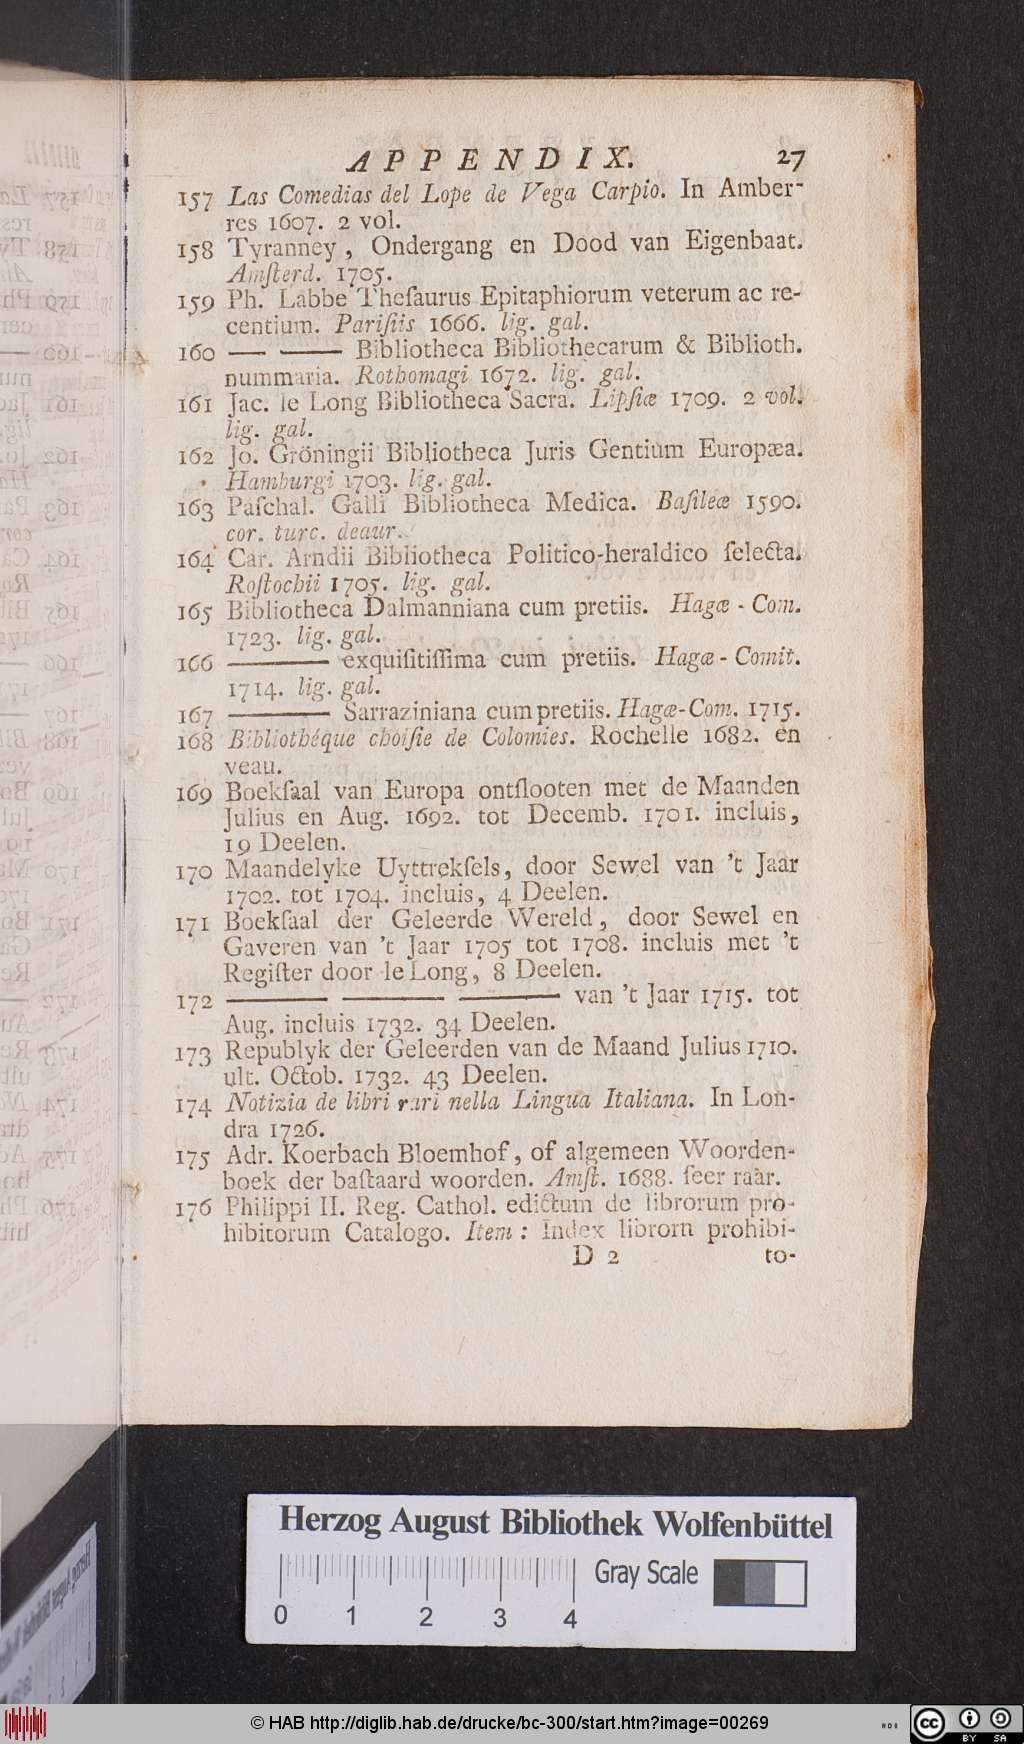 APPENDIX. 27
157 Las Comedias del Lope de Vega Carpio. In Amber-
res 1607. 2 vol.
158 Tyranney, Ondergang en Dood van Eigenbaat.
Amſterd. 1705.
159 Ph. Labbe Theſaurus Epitaphiorum veterum ac re-
centium. Pariſiis 1666. lig. gal.
160 — —— Bibliotheca Bibliothecarum & Biblioth.
nummaria. Rothomagi 1672. lig. gal.
161 Jac. le Long Bibliotheca Sacra. Lipſiæ 1709. 2 vol.
lig. gal.
162 Jo. Gröningii Bibliotheca Juris Gentium Europæa.
Hamburgi 1703. lig. gal.
163 Paſchal. Galli Bibliotheca Medica. Baſileæ 1590.
cor. turc. deaur.
164 Car. Arndii Bibliotheca Politico-heraldico ſelecta.
Roſtochii 1705. lig. gal.
165 Bibliotheca Dalmanniana cum pretiis. Hagæ-Com.
1723. lig. gal.
166 ——— exquiſitiſſima cum pretiis. Hagæ-Comit.
1714. lig. gal.
167 ——— Sarraziniana cum pretiis. Hagæ-Com. 1715.
168 Bibliothéque choiſie de Colomies. Rochelle 1682. en
veau.
169 Boekſaal van Europa ontſlooten met de Maanden
Julius en Aug. 1692. tot Decemb. 1701. incluis,
19 Deelen.
170 Maandelyke Uyttrekſels, door Sewel van 't Jaar
1702. tot 1704. incluis, 4 Deelen.
171 Boekſaal der Geleerde Wereld, door Sewel en
Gaveren van 't Jaar 1705 tot 1708. incluis met 't
Regiſter door le Long, 8 Deelen.
172 ——— ——— ——— van 't Jaar 1715. tot
Aug. incluis 1732. 34 Deelen.
173 Republyk der Geleerden van de Maand Julius 1710.
ult. Octob. 1732. 43 Deelen.
174 Notizia de libri rari nella Lingua Italiana. In Lon-
dra 1726.
175 Adr. Koerbach Bloemhof, of algemeen Woorden-
boek der baſtaard woorden. Amſt. 1688. ſeer raar.
176 Philippi II. Reg. Cathol. edictum de librorum pro-
hibitorum Catalogo. Item: Index librorn prohibi-
D 2 to-
Herzog August Bibliothek Wolfenbüttel
Gray Scale
0 1 2 3 4
© HAB http://diglib.hab.de/drucke/bc-300/start.htm?image=00269
cc BY SA